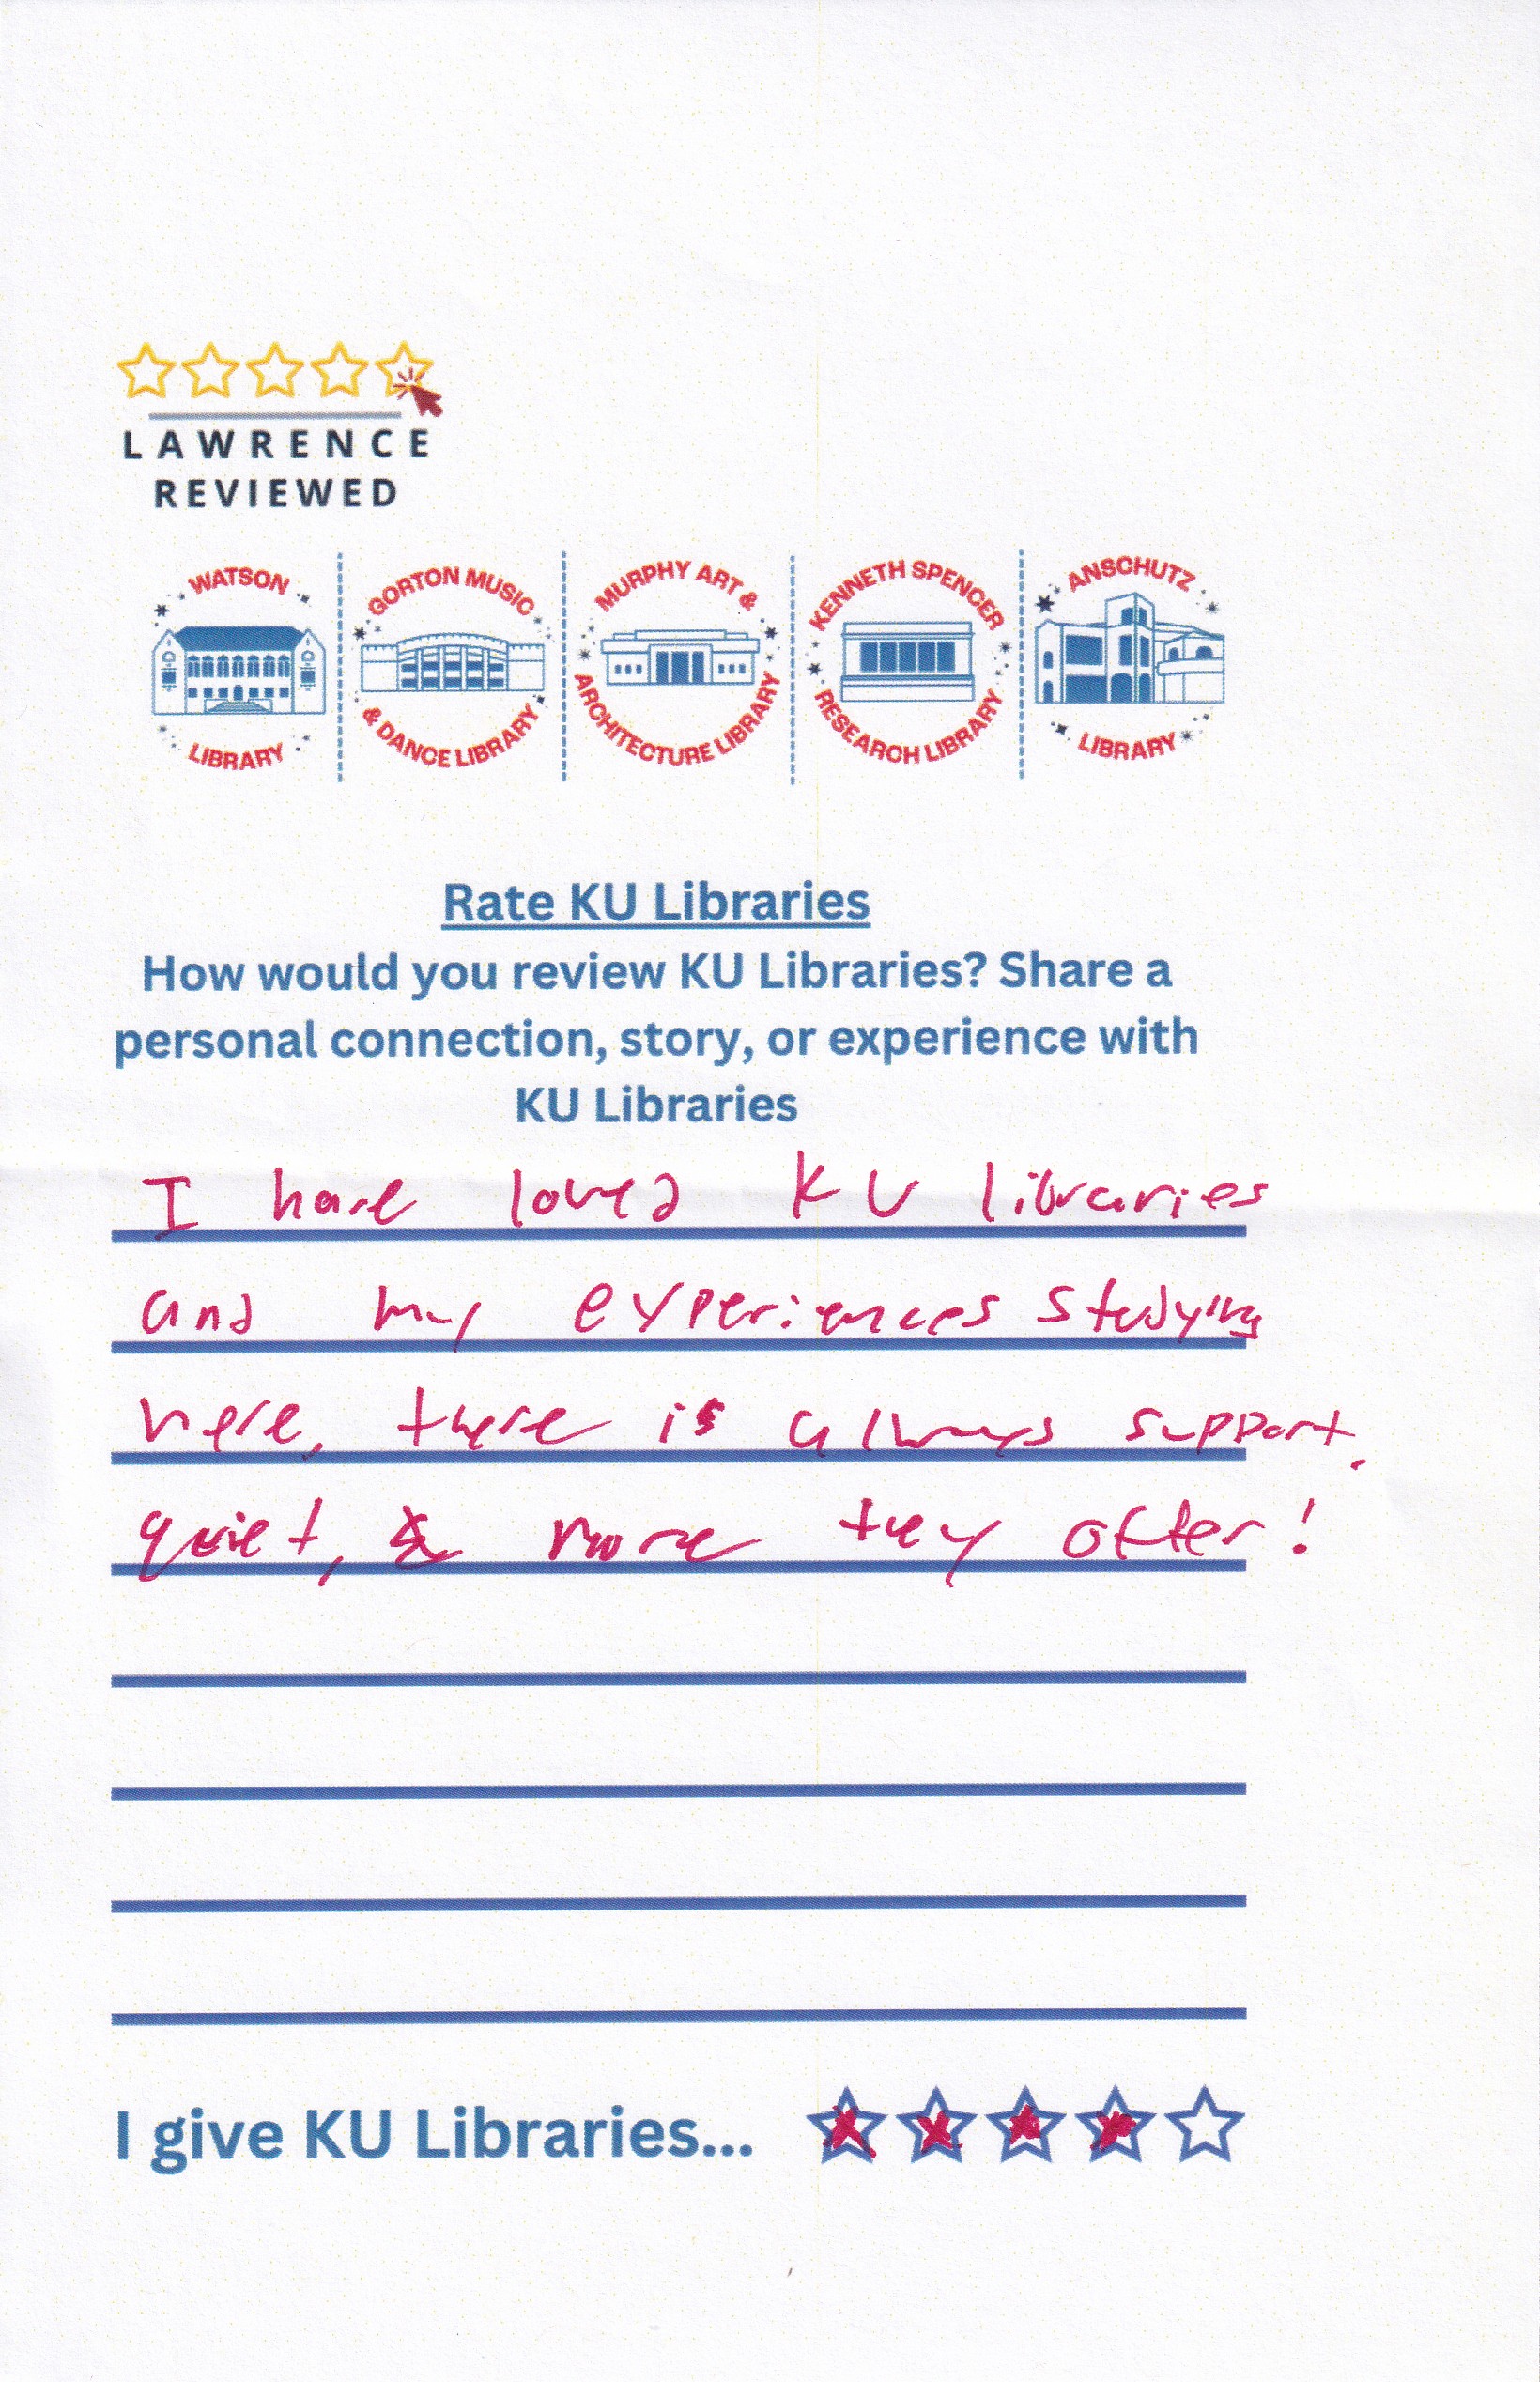 LAWRENCE
REVIEWED
WATSON LIBRARY
GORTON MUSIC & DANCE LIBRARY
MURPHY ART & ARCHITECTURE LIBRARY
KENNETH SPENCER RESEARCH LIBRARY
ANSCHUTZ LIBRARY
Rate KU Libraries
How would you review KU Libraries? Share a
personal connection, story, or experience with
KU Libraries
I have loved KU libraries
and my experiences studying
here, there is always support,
quiet, & more they offer!
I give KU Libraries...